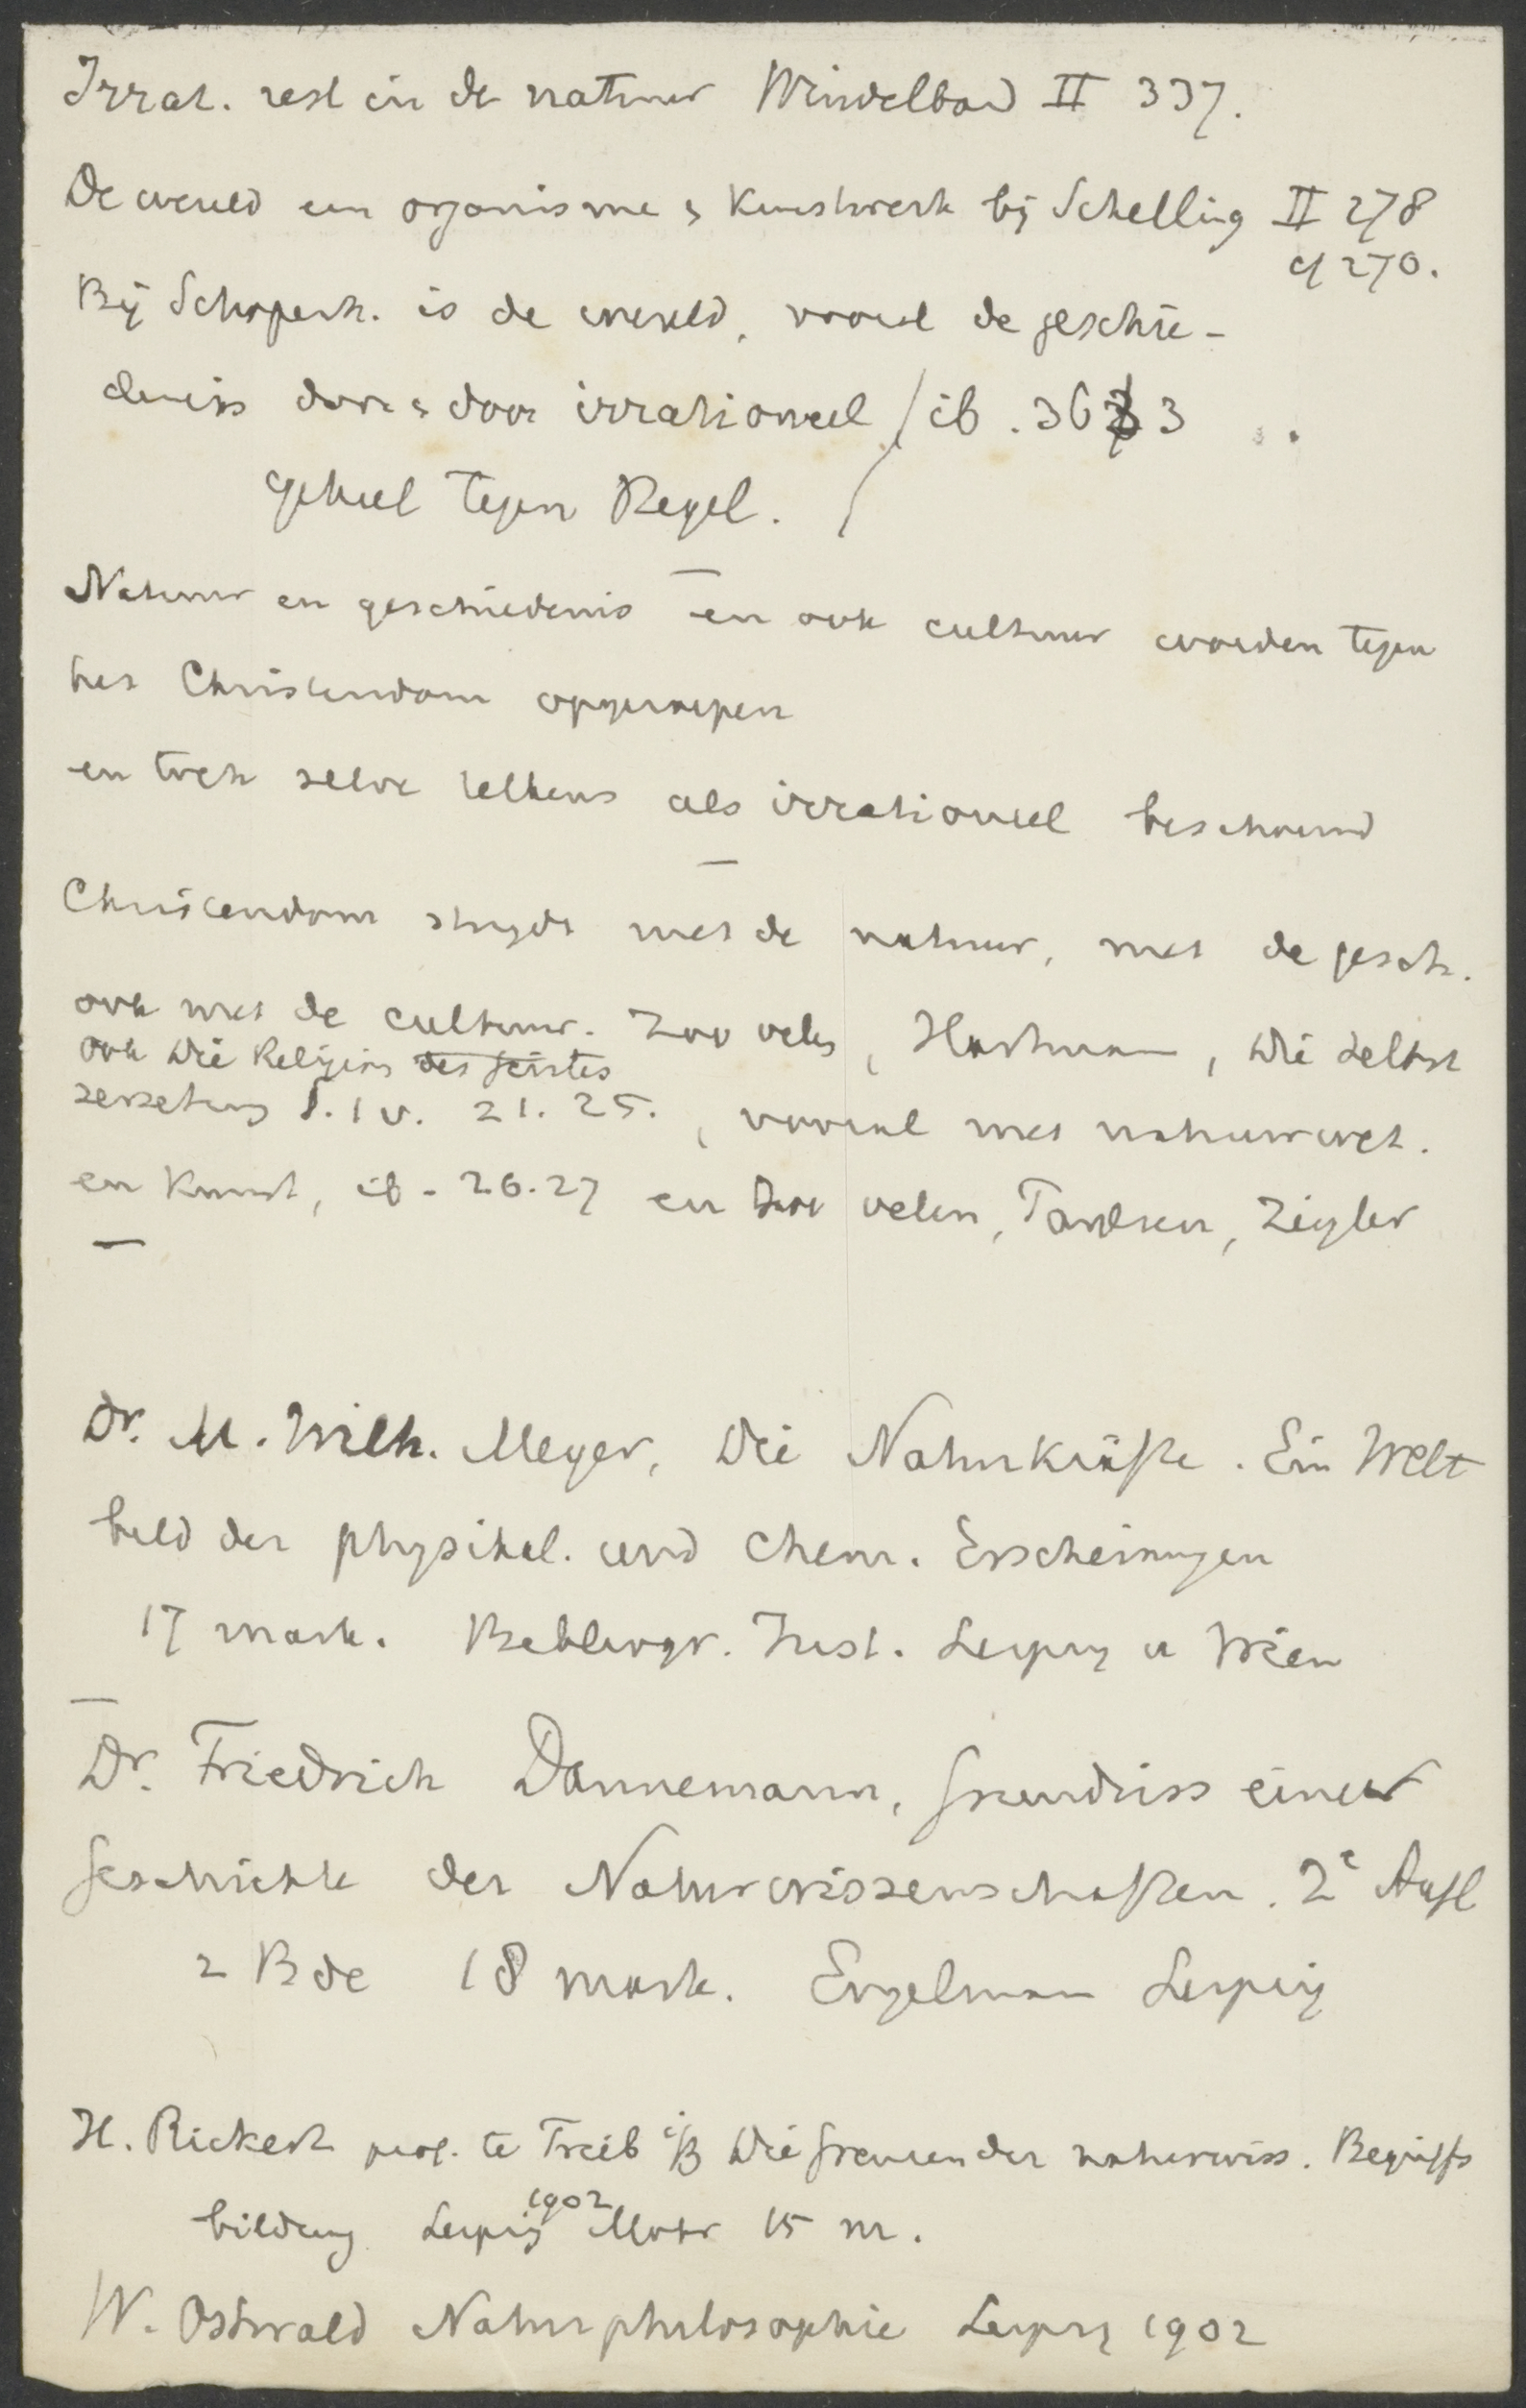 Irrat. rest in de natuur Windelband II 337.
De wereld een organisme & Kunstwerk bij Schelling II 278
cf 270.
Bij Schopenh. is de wereld, vooral de geschie-
denis door & door irrationeel / ib. 363
geheel tegen Hegel.
Natuur en geschiedenis en ook cultuur worden tegen
het Christendom opgeroepen
en toch zelve telkens als irrationeel beschouwd
Christendom strijdt met de natuur, met de gesch.
ook met de cultuur. Zoo velen, Hartmann, Die Selbst
ook Die Religion des Geistes
zersetzung S. IV. 21. 25., vooral met natuurwet.
en Kunst, ib. 26.27 en zoo velen, Paulsen, Ziegler
Dr. M. Wilh. Meyer, Die Naturkräfte. Ein Welt
bild der physikal. und chem. Erscheinungen
17 mark. Bibliogr. Inst. Leipzig u Wien
Dr. Friedrich Dannemann, Grundriss einer
Geschichte der Naturwissenschaften. 2e Aufl
2 Bde 18 mark. Engelmann Leipzig
H. Rickert prof. te Freib i/B Die Grenzen der naturwiss. Begriffs
bildung Leipzig 1902 Mohr 15 m.
W. Ostwald Naturphilosophie Leipzig 1902